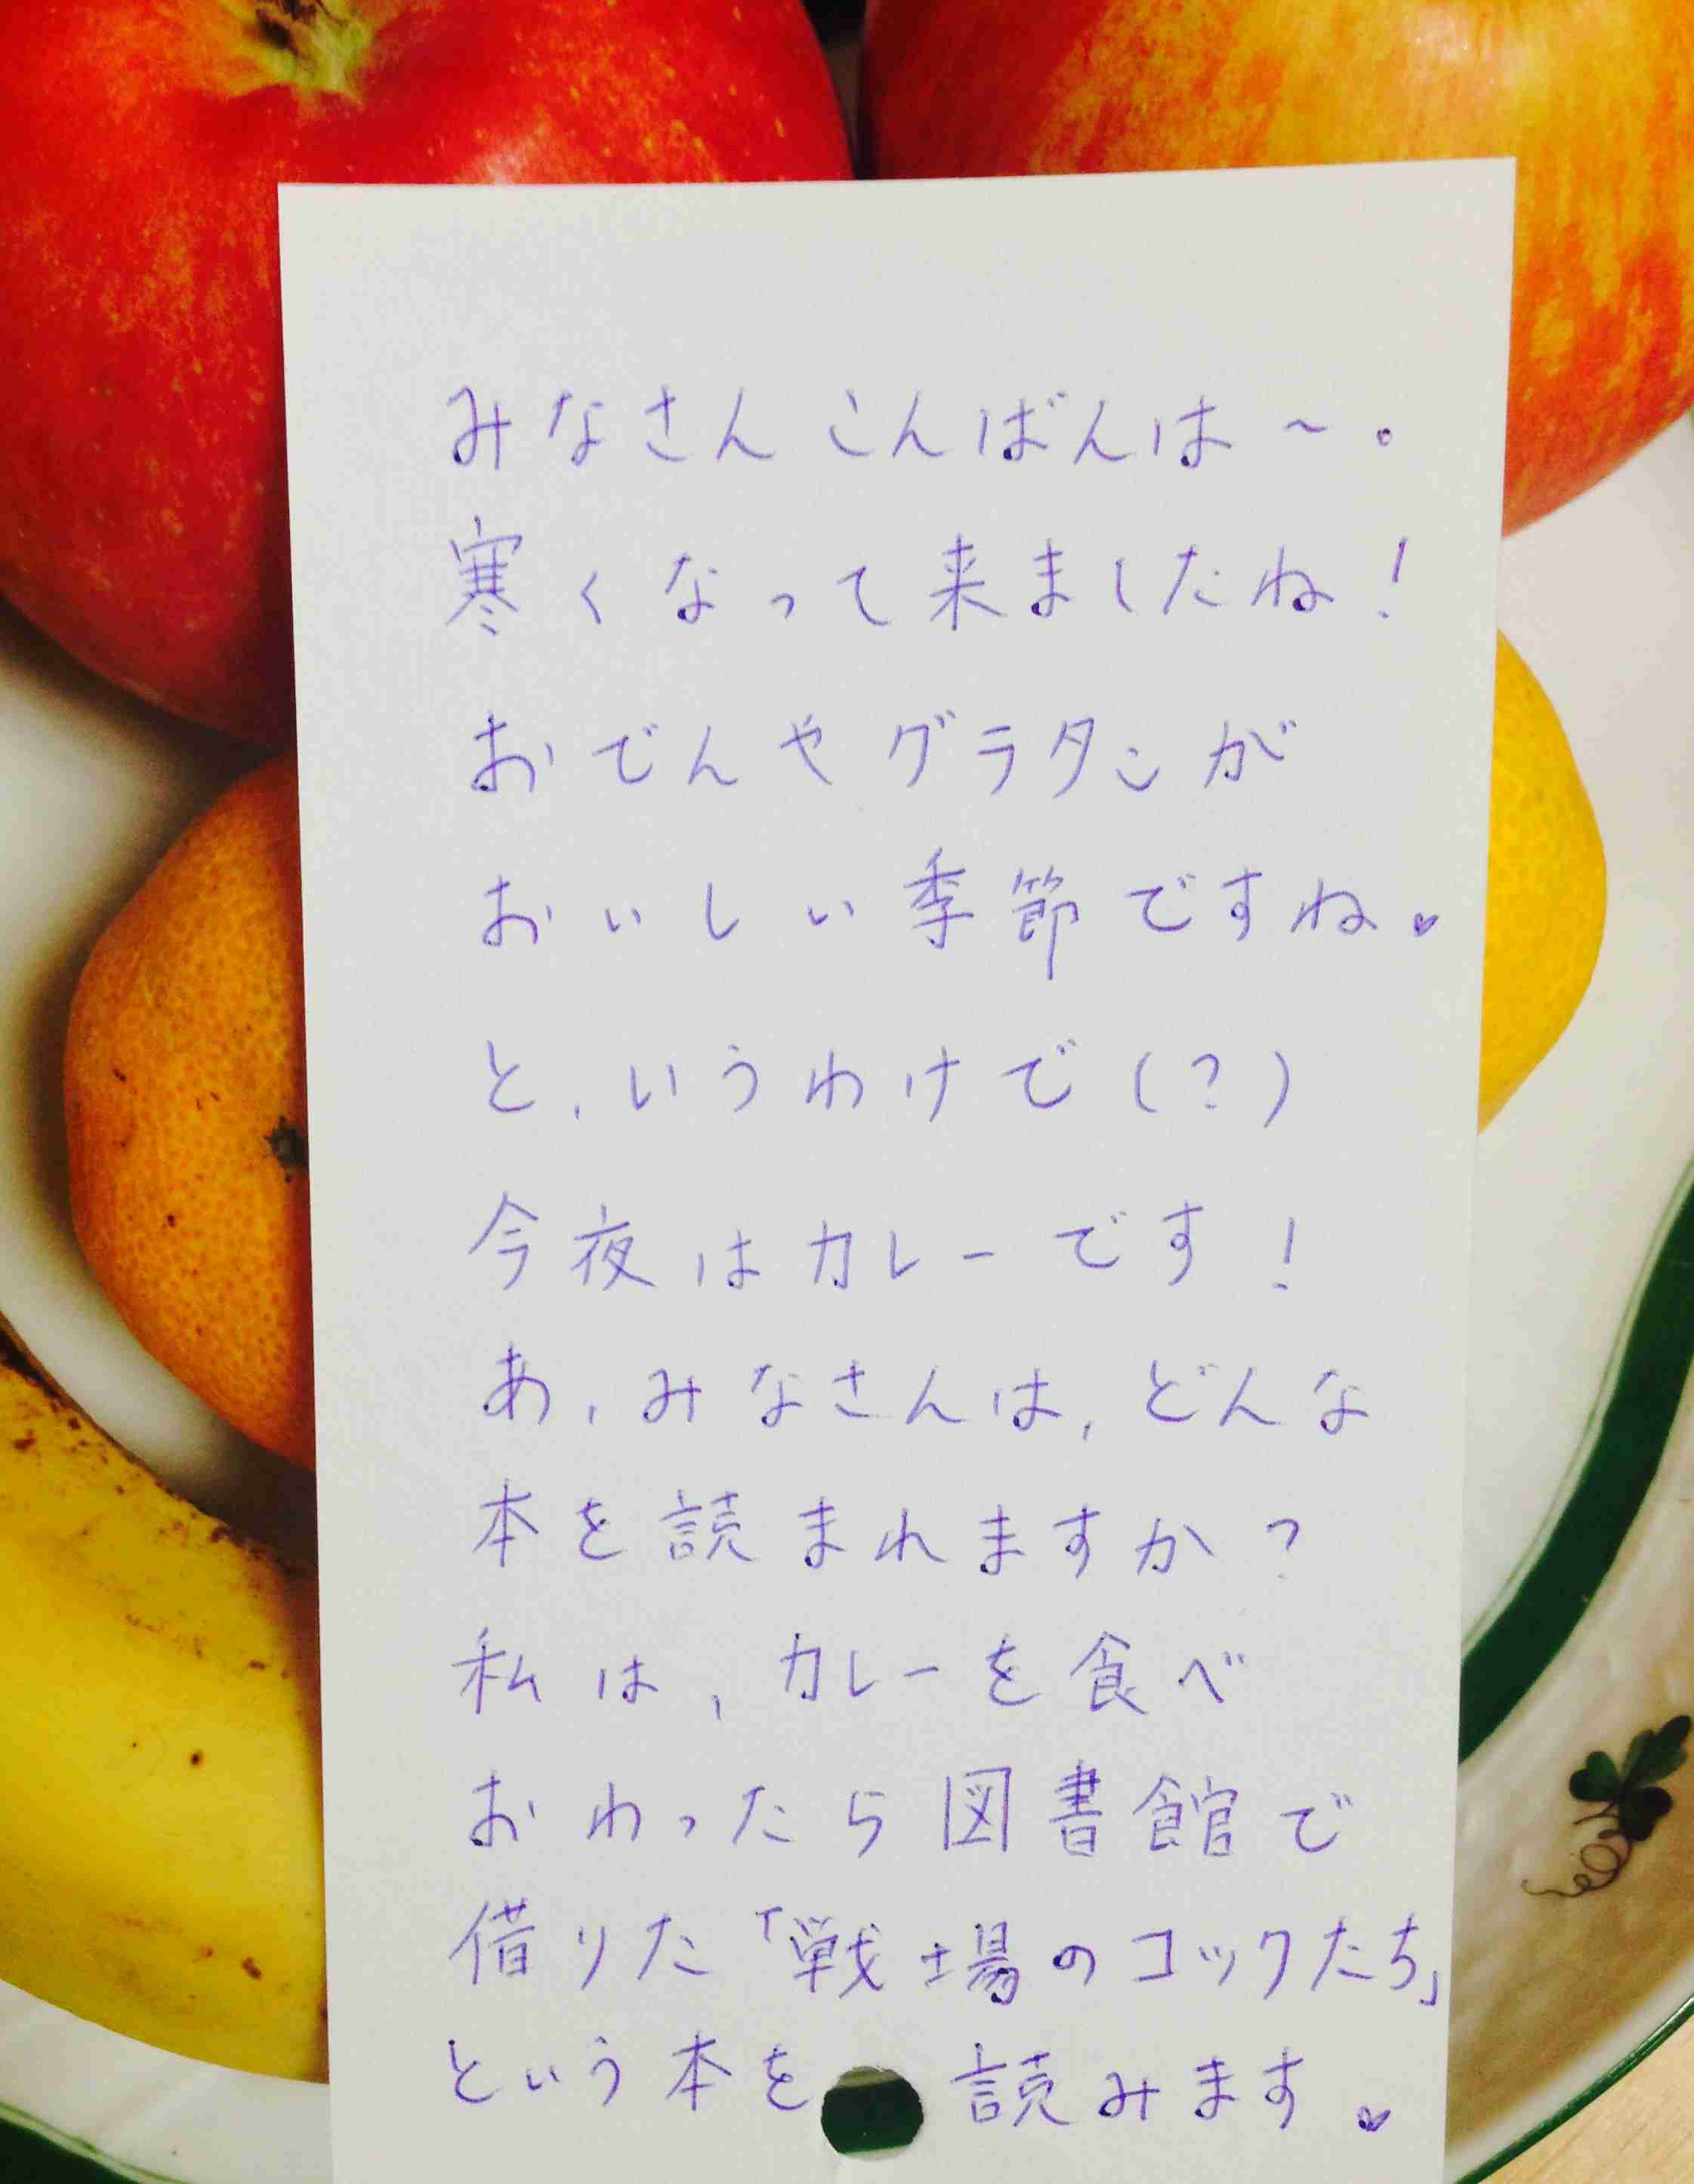 みなさんこんばんは～。
寒くなって来ましたね！
おでんやグラタンが
おいしい季節ですね♥
と、いうわけで(？)
今夜はカレーです！
あ、みなさんは、どんな
本を読まれますか？
私は、カレーを食べ
おわったら図書館で
借りた「戦場のコックたち」
という本を読みます♥